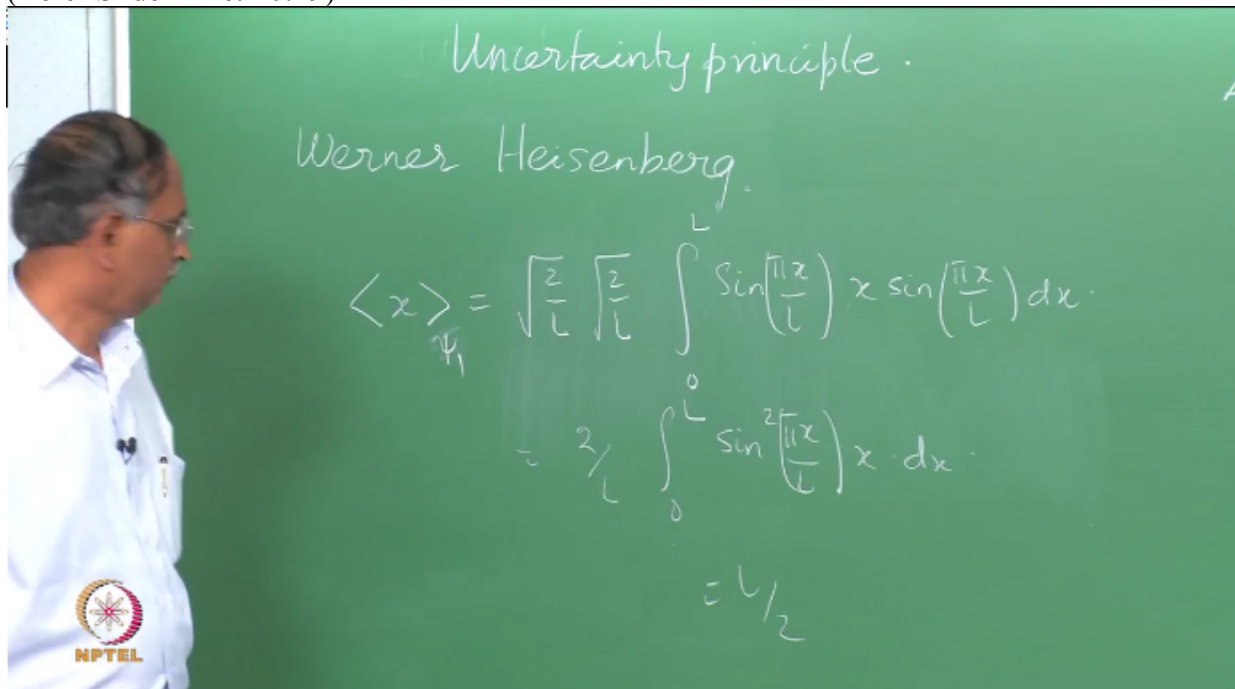 Uncertainty principle.
Werner Heisenberg.
<x>ψ₁ = √(2/L) √(2/L) ∫₀ᴸ Sin(πx/L) x sin(πx/L) dx.
= 2/L ∫₀ᴸ sin²(πx/L) x · dx.
= L/2
NPTEL